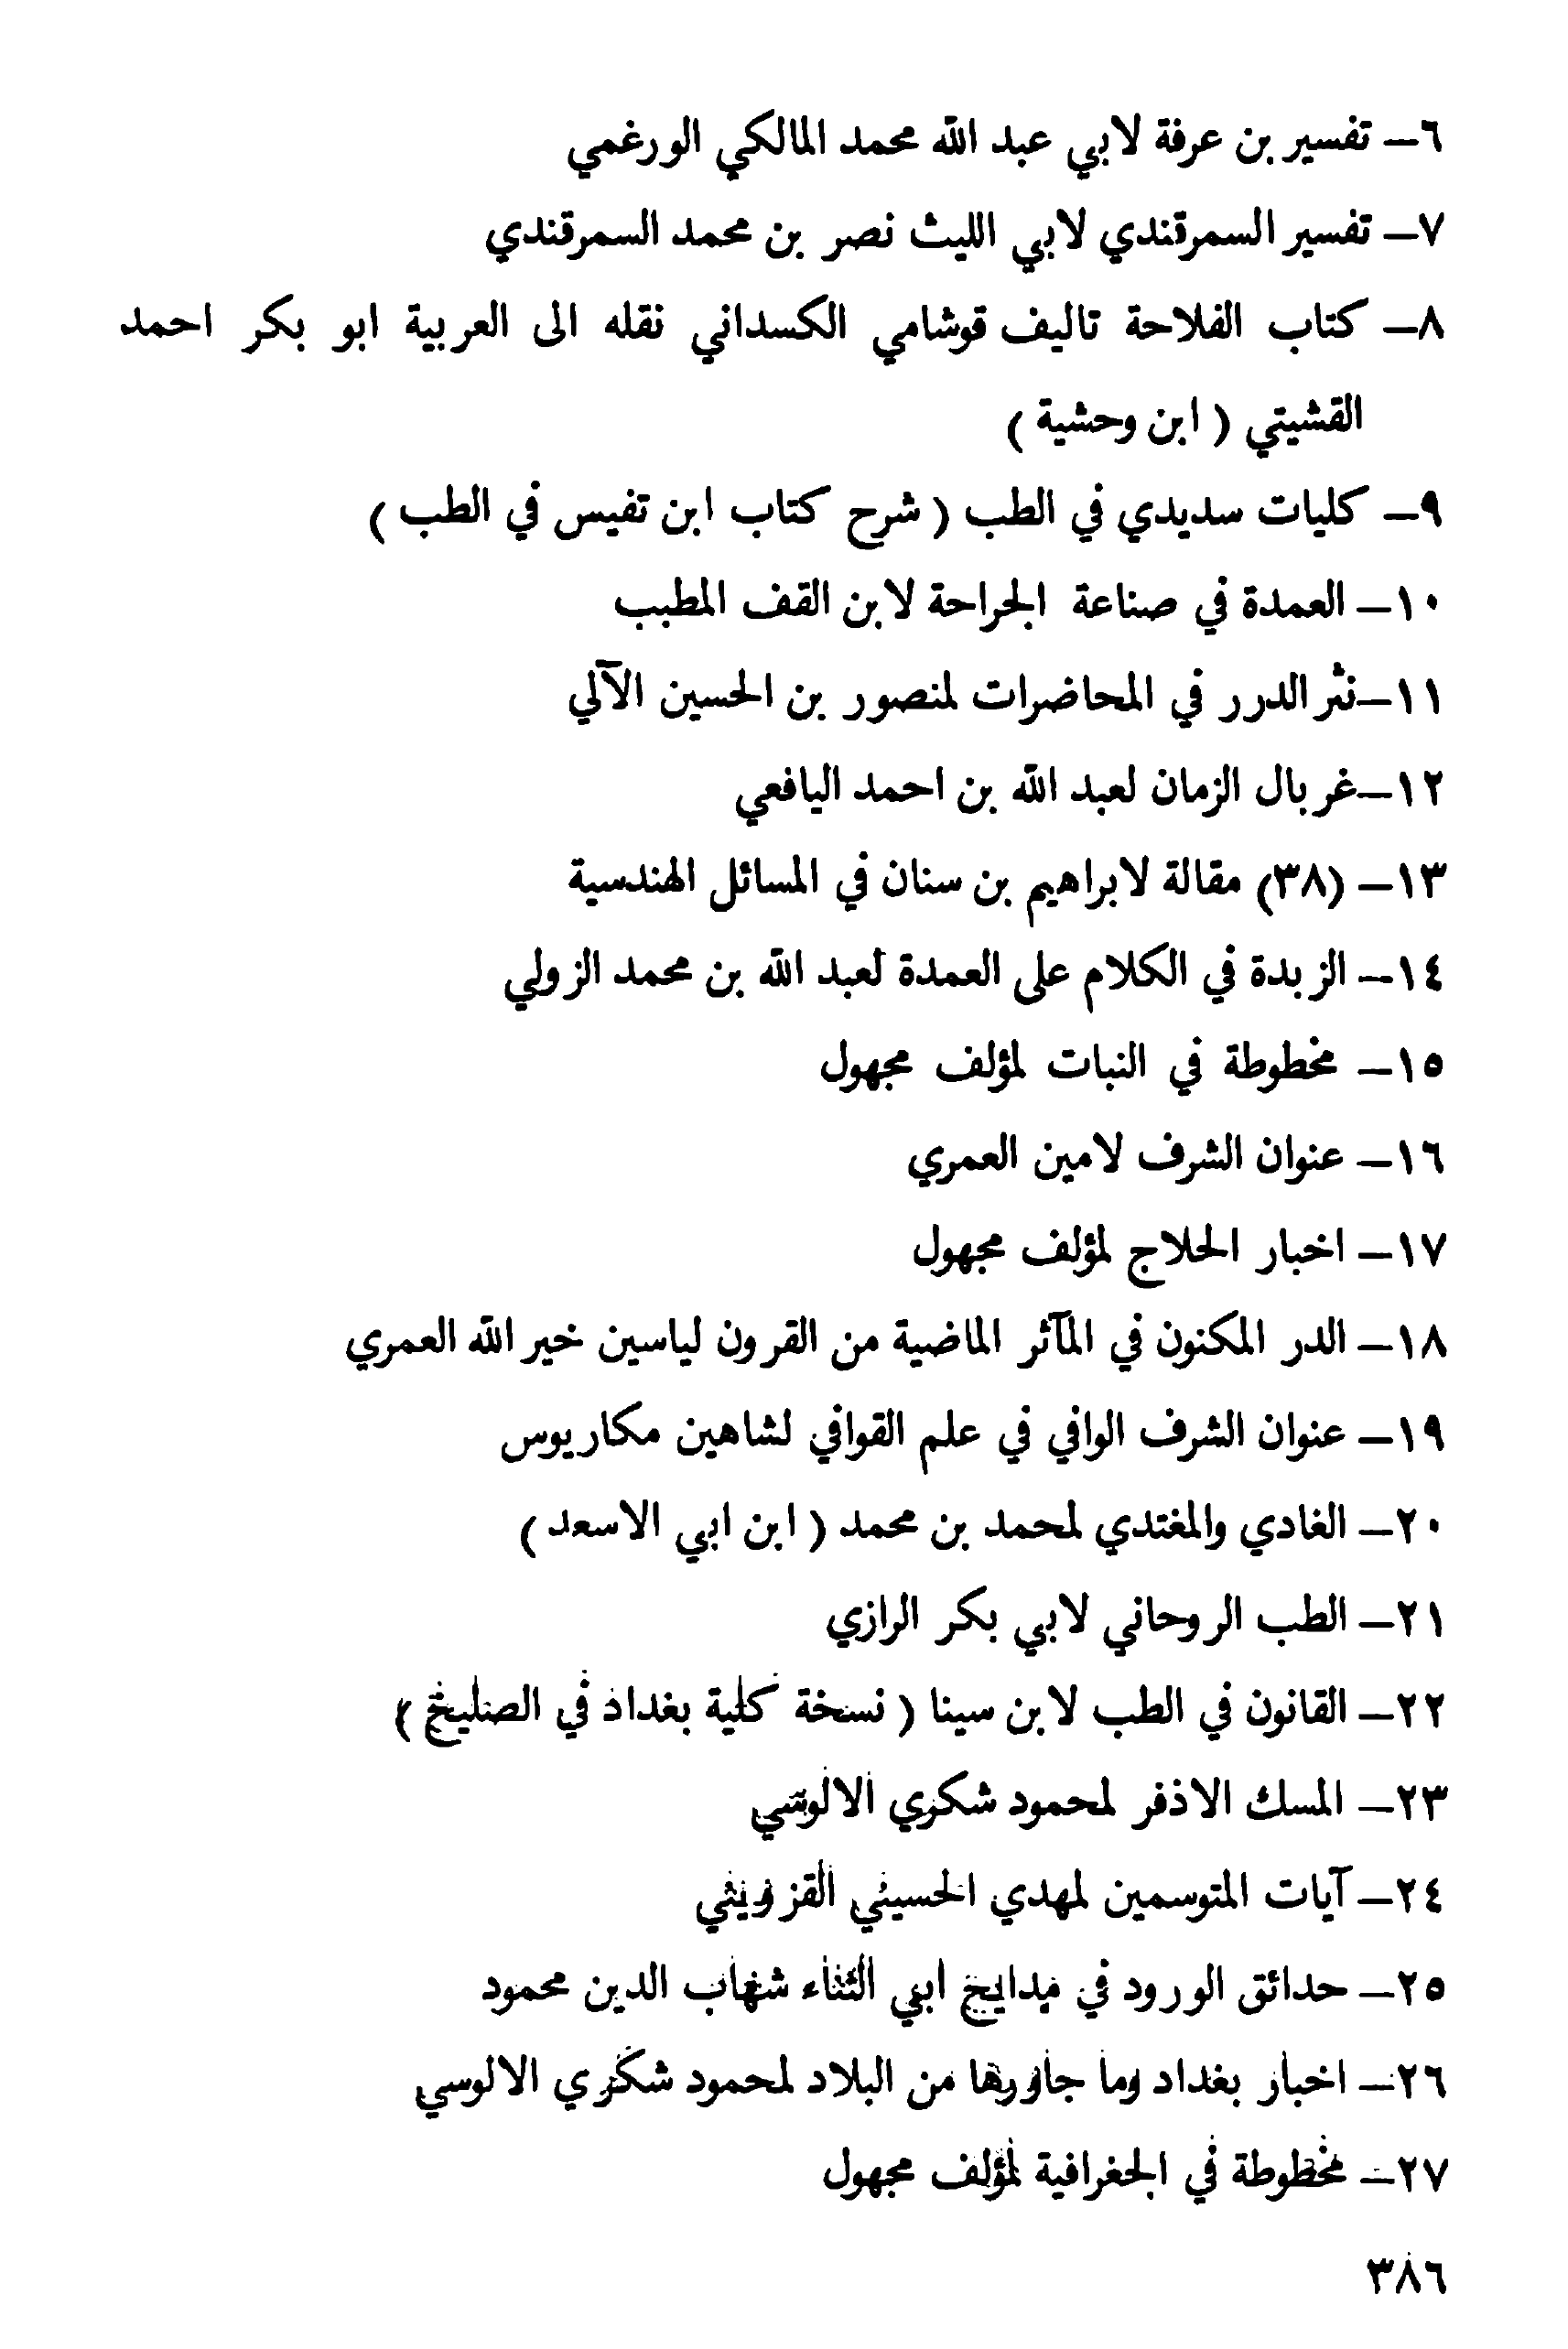 ٦– تفسير بن عرفة لابي عبد الله محمد المالكي الورغمي
٧– تفسير السمرقندي لابي الليث نصر بن محمد السمرقندي
٨– كتاب الفلاحة تاليف قوشامي الكسداني نقله الى العربية ابو بكر احمد
القشيتي ( ابن وحشية )
٩– كليات سديدي في الطب ( شرح كتاب ابن تفيس في الطب )
١٠– العمدة في صناعة الجراحة لابن القف المطبب
١١–نثر الدرر في المحاضرات لمنصور بن الحسين الآلي
١٢–غربال الزمان لعبد الله بن احمد اليافعي
١٣– (٣٨) مقالة لابراهيم بن سنان في المسائل الهندسية
١٤– الزبدة في الكلام على العمدة لعبد الله بن محمد الزولي
١٥– مخطوطة في النبات لمؤلف مجهول
١٦– عنوان الشرف لامين العمري
١٧– اخبار الحلاج لمؤلف مجهول
١٨– الدر المكنون في المآثر الماضية من القرون لياسين خير الله العمري
١٩– عنوان الشرف الوافي في علم القوافي لشاهين مكاريوس
٢٠– الغادي والمغتدي لمحمد بن محمد ( ابن ابي الاسعد )
٢١– الطب الروحاني لابي بكر الرازي
٢٢– القانون في الطب لابن سينا ( نسخة كلية بغداد في الصليخ )
٢٣– المسك الاذفر لمحمود شكري الالوسي
٢٤– آيات المتوسمين لمهدي الحسيني القزويني
٢٥– حدائق الورود في مدايح ابي الثناء شهاب الدين محمود
٢٦– اخبار بغداد وما جاورها من البلاد لمحمود شكري الالوسي
٢٧– مخطوطة في الجغرافية لمؤلف مجهول
٣٨٦